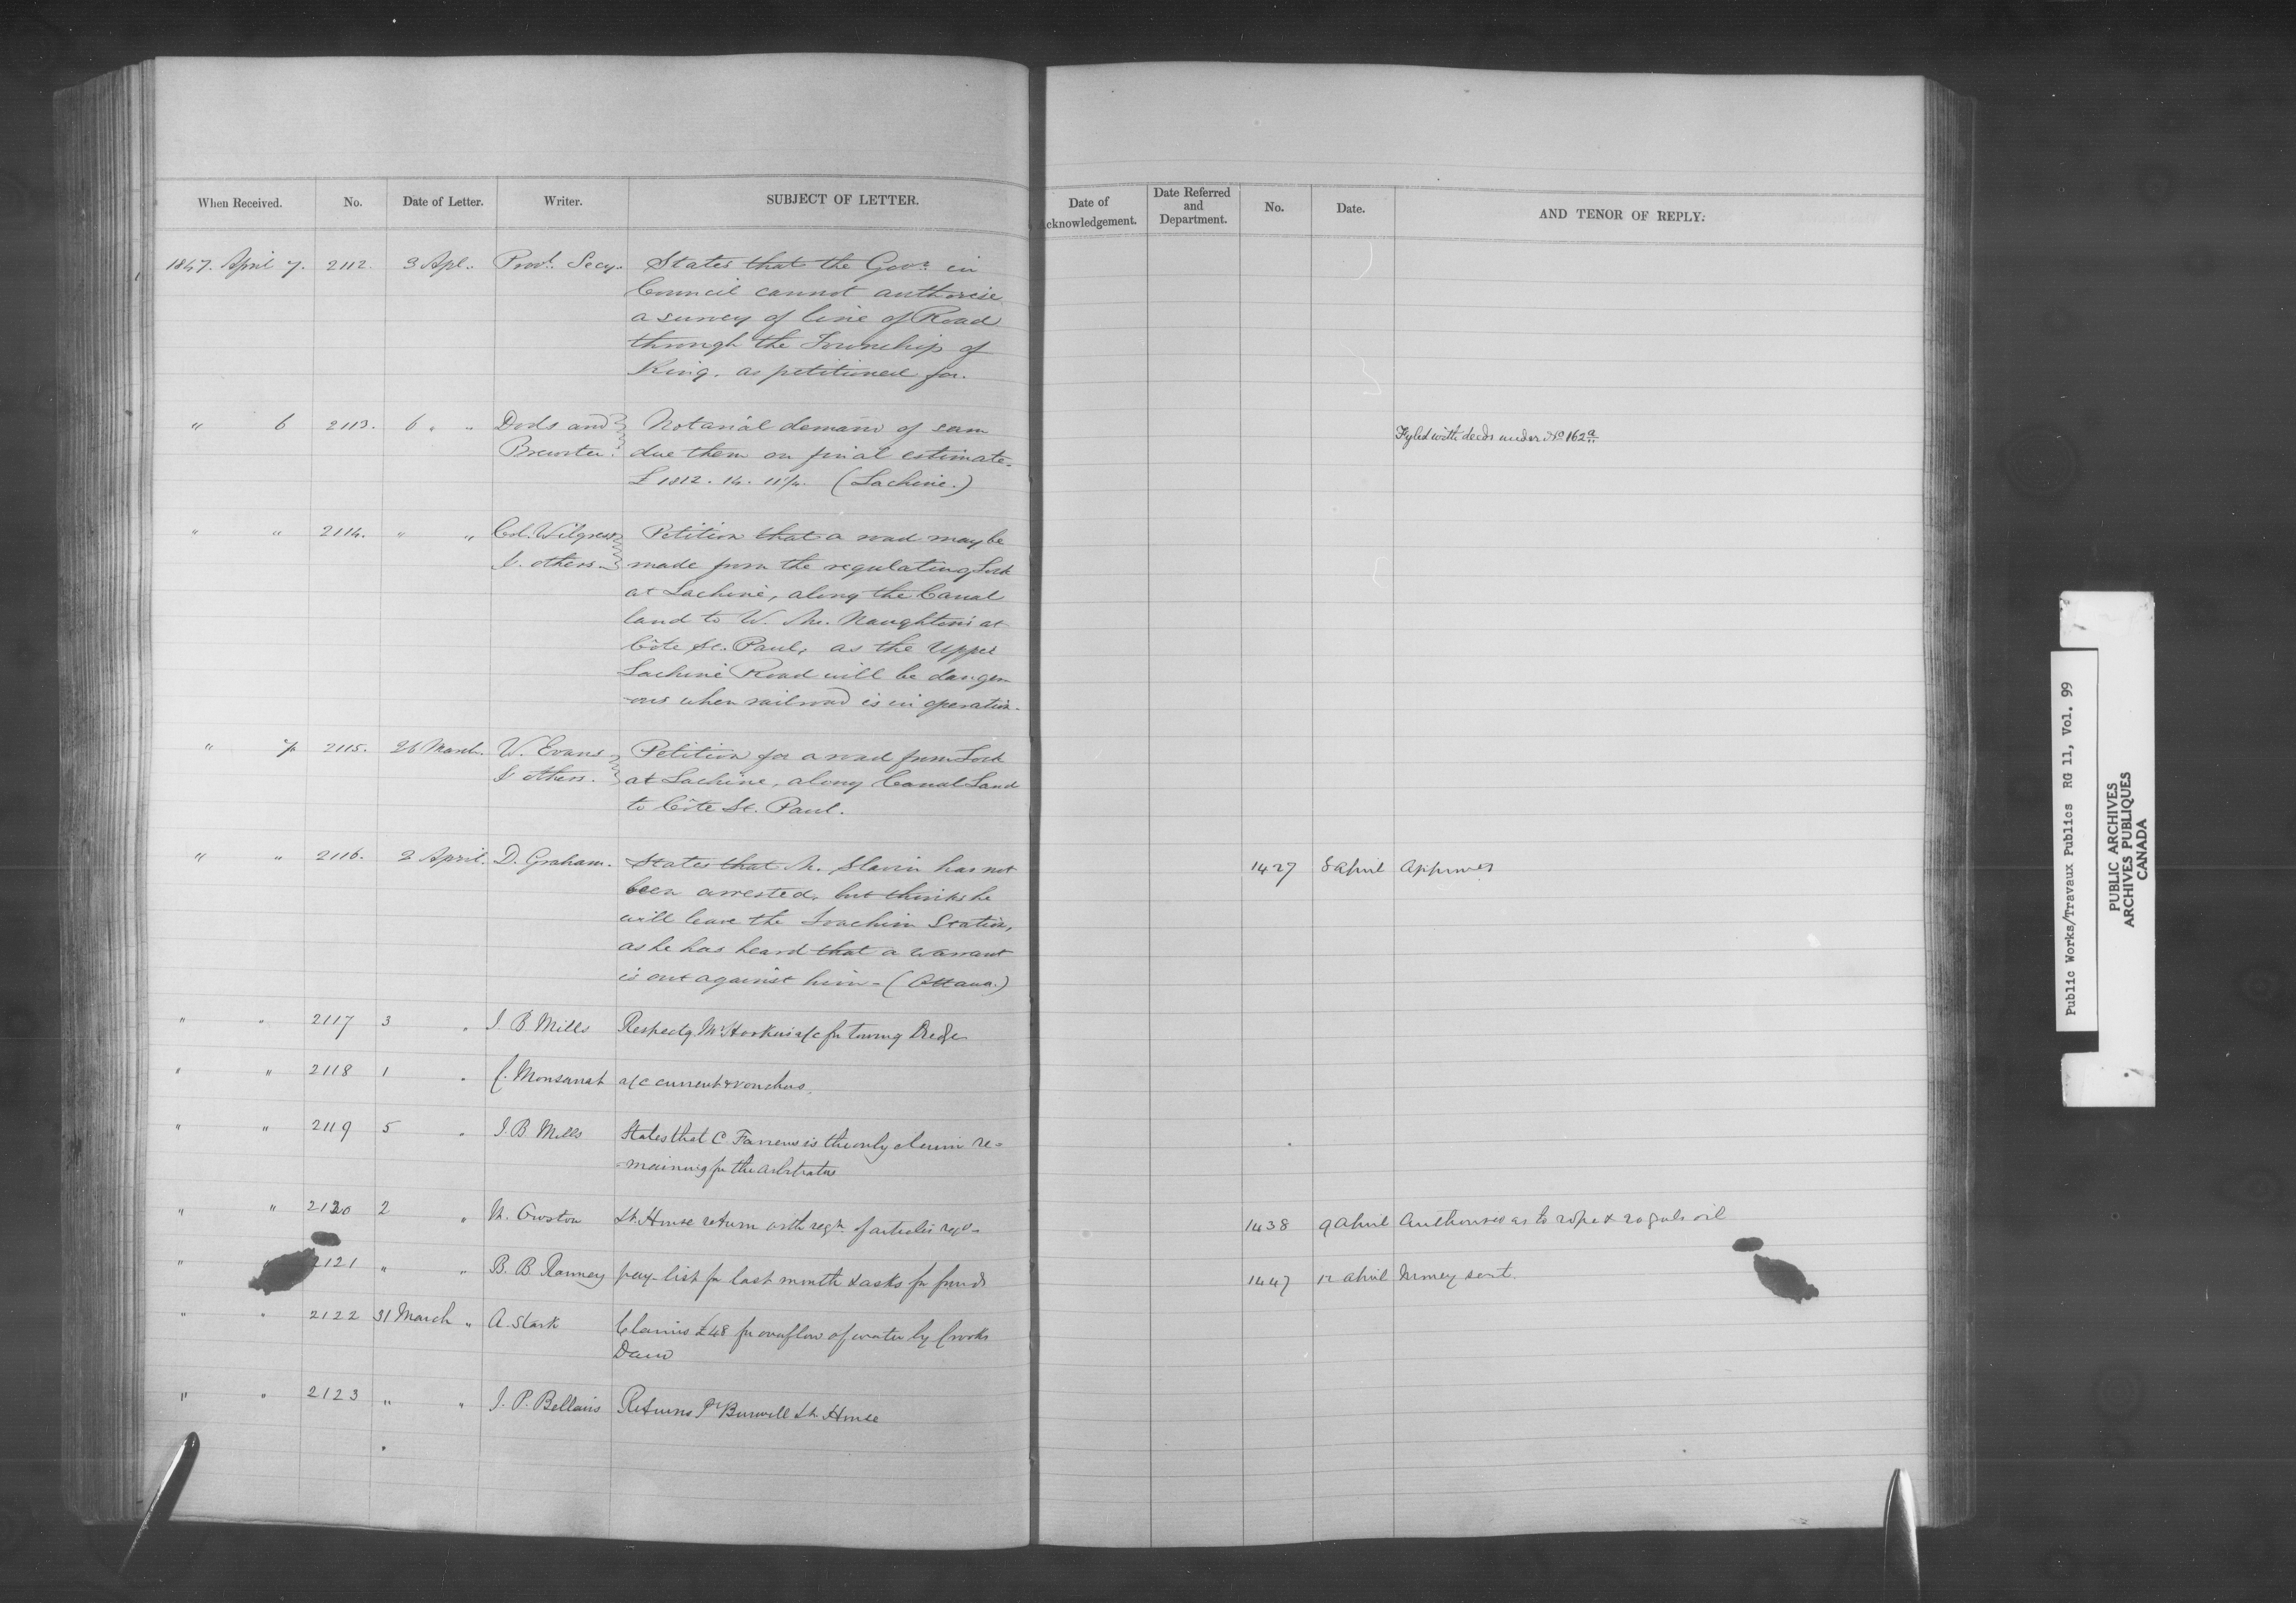 When Received. No. Date of Letter. Writer. SUBJECT OF LETTER.
Date of Acknowledgement. Date Referred and Department. No. Date. AND TENOR OF REPLY.
1847. April 7. 2112. 3 Apl. Provl. Secy. States that the Govr. in
Council cannot authorise
a survey of line of Road
through the Township of
King. as petitioned for.
" 6 2113. 6 " " Dods and Notarial demand of sum
Brewster. due them on final estimate.
£ 1812. 14. 11 1/4. (Lachine.)
Fyled with deeds under No 162a
" " 2114. " " Col. Wilgress Petition that a road may be
& others. made from the regulating Lock
at Lachine, along the Canal
land to W. Mc. Naughtons at
Côte St. Paul, as the Upper
Lachine Road will be danger
-ous when railroad is in operation.
" 7 2115. 26 March. W. Evans Petition for a road from Lock
& others. at Lachine, along Canal Land
to Côte St. Paul.
" " 2116. 3 April. D. Graham. States that M. Slavin has not
been arrested, but thinks he
will leave the Station,
as he has heard that a warrant
is out against him - (Ottawa.)
1427 8 April Approved
" " 2117 3 " J B Mills Respectg. Mr Hookers a/c for towing Dredge
" " 2118 1 " C. Monsarrat a/c current & vouchers.
" " 2119 5 " J. B Mills States that C. Farrens is the only claim re=
=maining for the arbitrators
" " 2120 2 " Lt. House return with reqn. of articles reqd.
1438 9 April Authorised as to rope & 20 gals oil
" " 2121 " " B. B Ranney pay-list for last month & asks for funds
1447 12 April Money sent.
" " 2122 31 March " A. Stark Claims £48 for overflow of water by Crooks
Dam
" " 2123 " " J. P. Bellairs Returns Pt Burwell Lt. House
Public Works/Travaux Publics RG 11, Vol. 99
PUBLIC ARCHIVES
ARCHIVES PUBLIQUES
CANADA